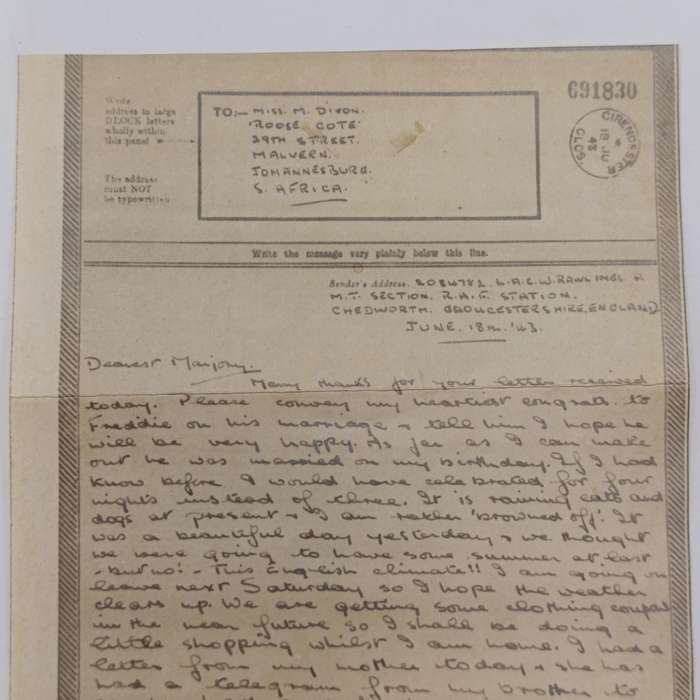 691830
Write
address in large
BLOCK letters
wholly within
this panel
The address
must NOT
be typewritten
TO:- MISS. M. DIXON.
'ROOSE COTE'
39TH STREET.
MALVERN.
JOHANNESBURG.
S. AFRICA.
CIRENCESTER
18 JU
43
GLOS
Write the message very plainly below this line.
Sender's Address. 2084782. L.A.C. W. RAWLINGS
M.T. SECTION. R.A.F. STATION.
CHEDWORTH. GLOUCESTERSHIRE, ENGLAND
JUNE. 18TH. '43.
Dearest Marjory.
Many thanks for your letter received
today. Please convey my heartiest congrats. to
Freddie on his marriage & tell him I hope he
will be very happy. As far as I can make
out he was married on my birthday. If I had
know before I would have celebrated for four
nights instead of three. It is raining cats and
dogs at present & I am rather 'browned off'. It
was a beautiful day yesterday & we thought
we were going to have some summer at last
- but no! - This English climate!! I am going on
leave next Saturday so I hope the weather
clears up. We are getting some clothing coupons
in the near future so I shall be doing a
little shopping whilst I am home. I had a
letter from my mother today & she has
had a telegram from my brother to